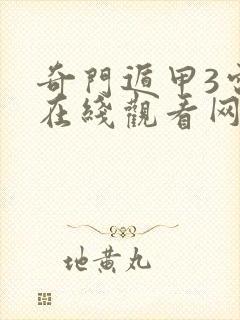 奇門遁甲3
在綫觀看网
地黄丸